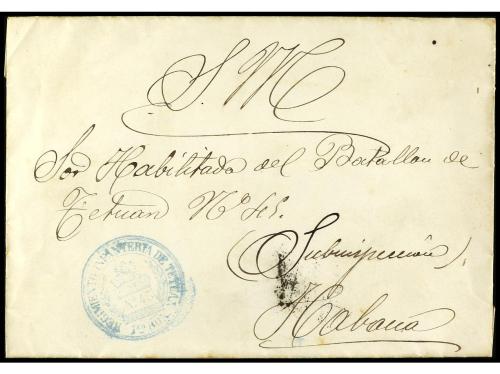 S. M
Sor Habilitado del Batallon de
Tetuan Nº 45.
(Subinspección)
Habana
REGIMIENTO INFANTERIA DE TETUAN
Nº 45